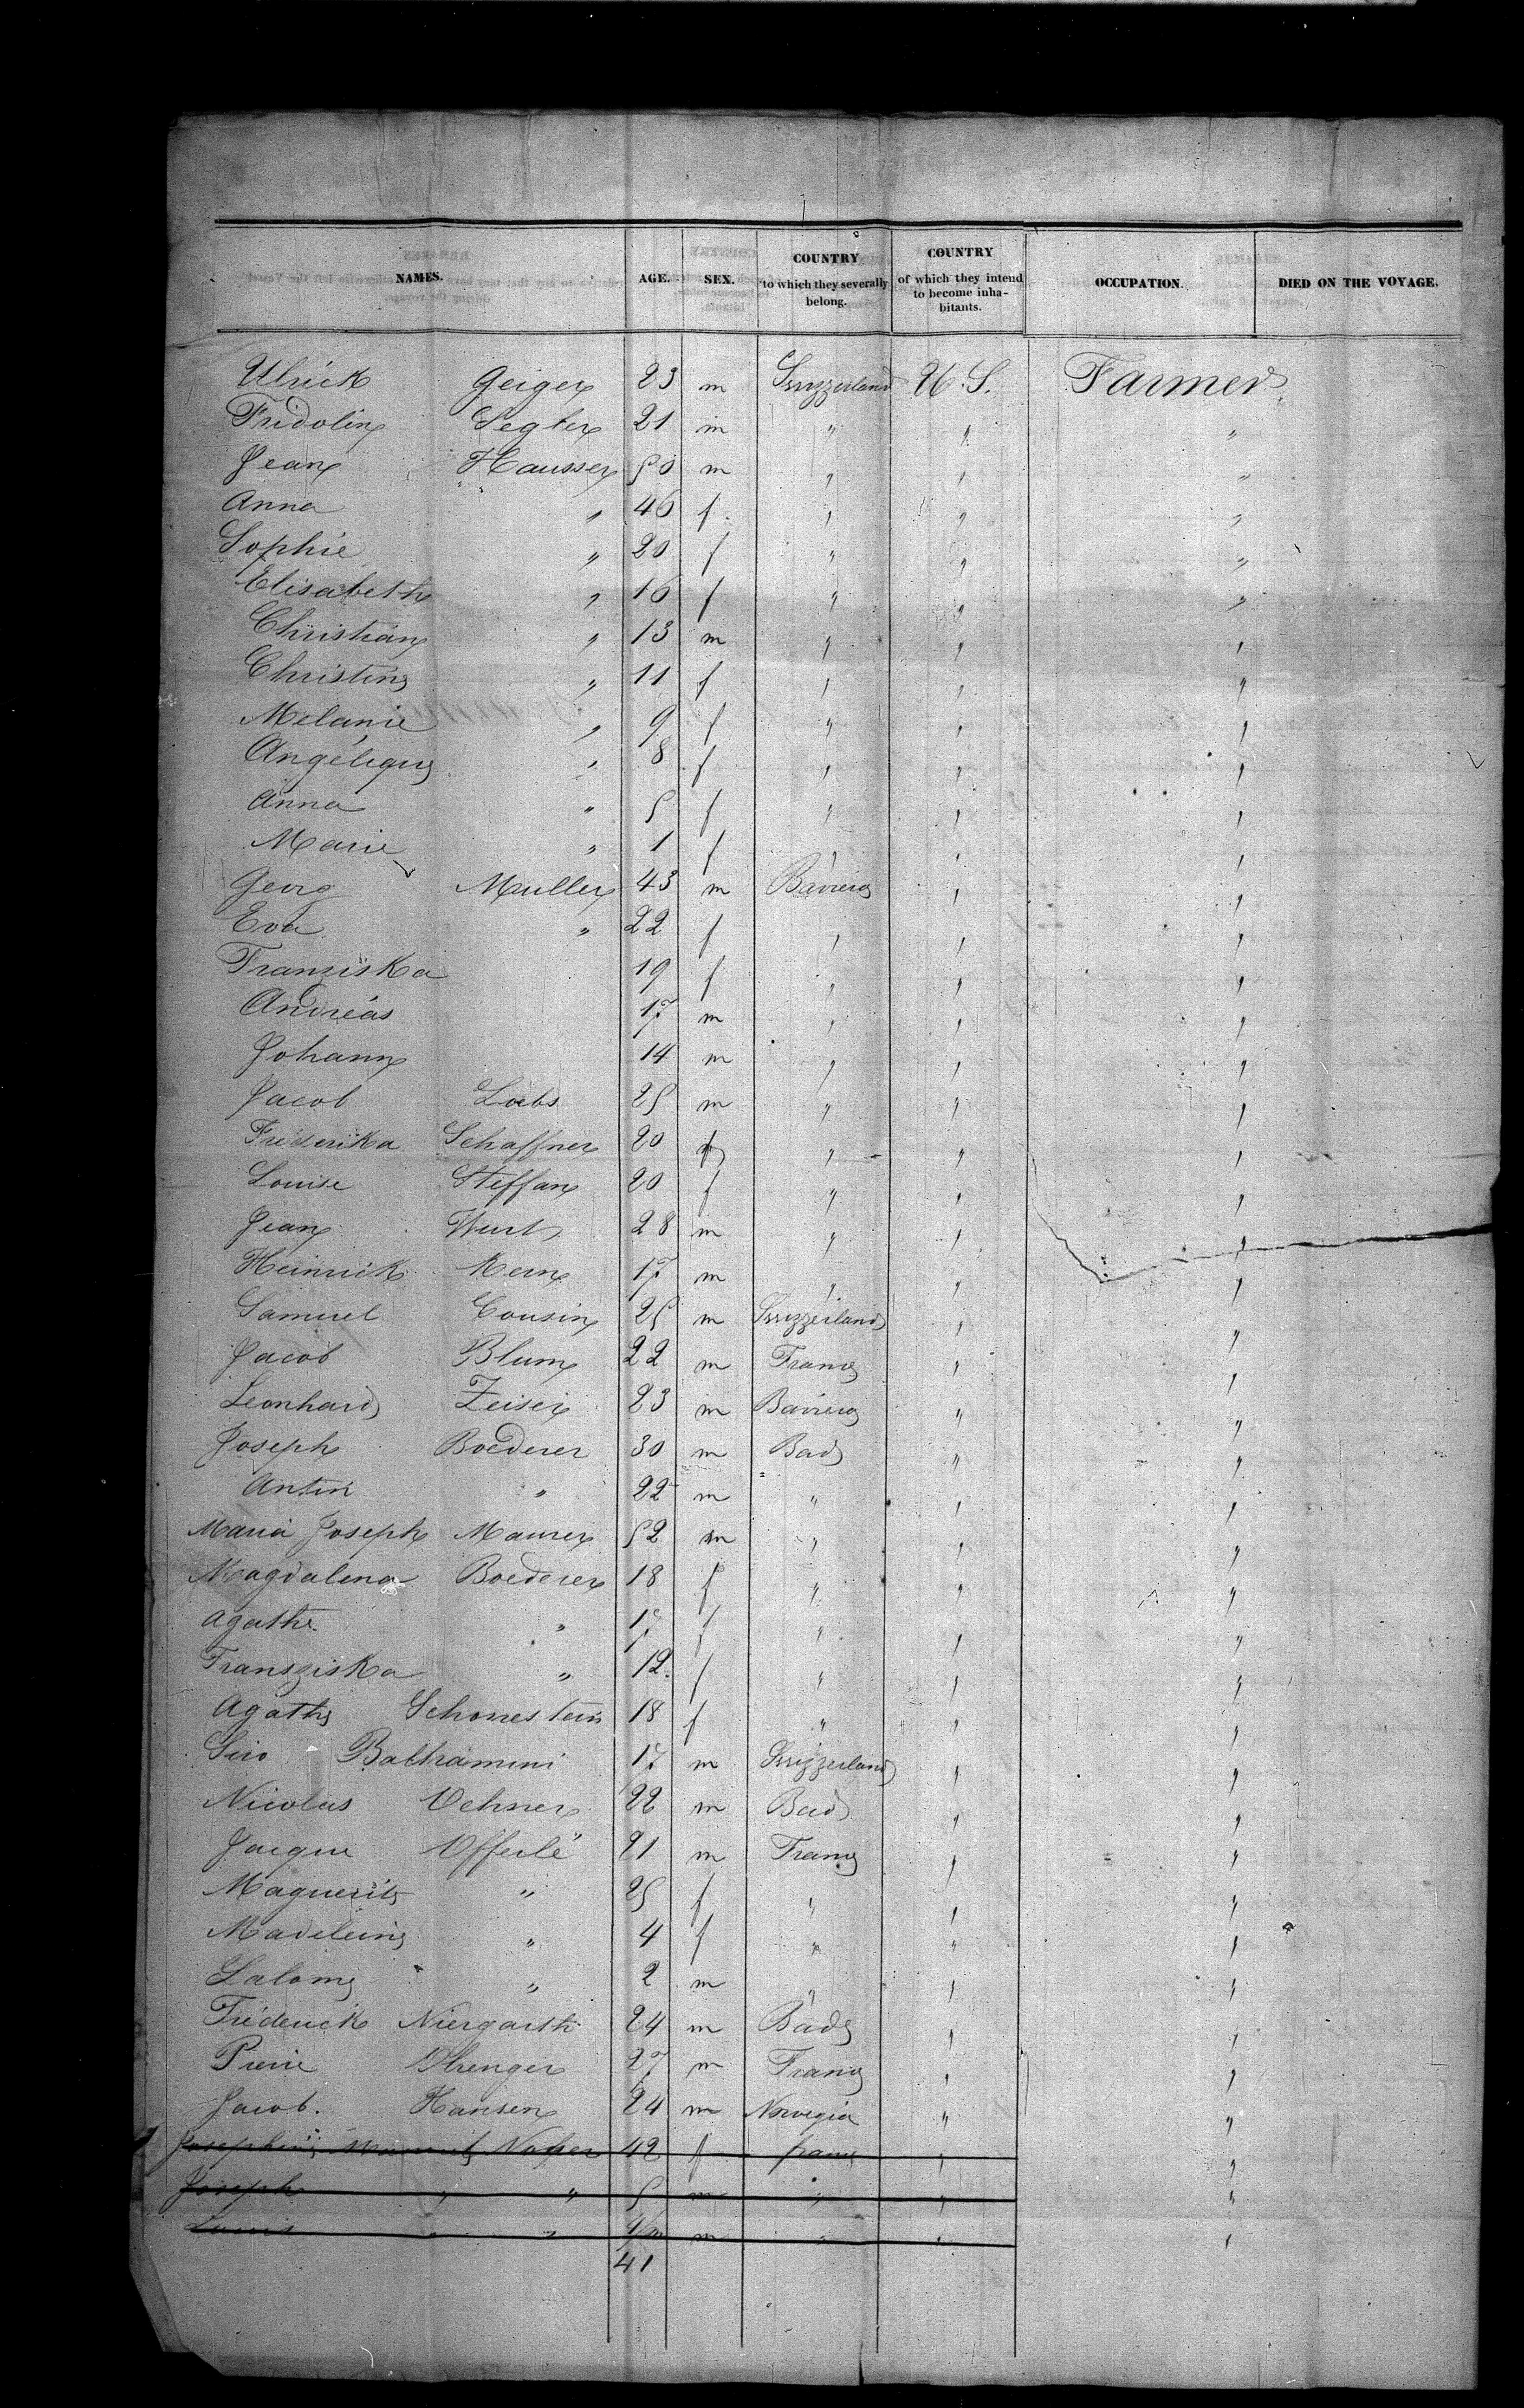 NAMES. AGE. SEX. COUNTRY to which they severally belong. COUNTRY of which they intend to become inhabitants. OCCUPATION. DIED ON THE VOYAGE.
Ulrick Geiger 23 m Swizzerland U.S. Farmer
Fridolin Segler 21 m " " "
Jean Hausser 50 m " " "
Anna " 46 f " " "
Sophie " 20 f " " "
Elisabeth " 16 f " " "
Christian " 13 m " " "
Christine " 11 f " " "
Melanie " 9 f " " "
Angélique " 8 f " " "
Anna " 5 f " " "
Marie " 1 f " " "
Georg Muller 43 m Baviera " "
Eva " 22 f " " "
Franziska 19 f " " "
Andréas 17 m " " "
Johann 14 m " " "
Jacob Loebs 25 m " " "
Friderika Schaffner 20 f " " "
Louise Steffan 20 f " " "
Jean Wurt 28 m " " "
Heinrick Kern 17 m " " "
Samuel Cousin 25 m Swizzerland " "
Jacob Blum 22 m France " "
Leonhard Zeiser 23 m Baviera " "
Joseph Boederer 30 m Bad " "
Anton " 22 m " " "
Maria Joseph Maurer 52 m " " "
Magdalena Boederer 18 f " " "
Agathe " 17 f " " "
Fransziska " 12 f " " "
Agathe Schonestein 18 f " " "
Siro Baltramini 17 m Swizzerland " "
Nicolas Oehner 22 m Bad " "
Jacque Offerlé 21 m France " "
Maguerite " 25 f " " "
Madeleine " 4 f " " "
Salome " 2 m " " "
Fréderick Niergarth 24 m Bade " "
Pierre Obrenger 27 m France " "
Jacob Hansen 24 m Norvegia " "
Josephine Noffer 42 f france " "
Joseph " " 5 m " " "
Louis " " 9/m m " " "
41